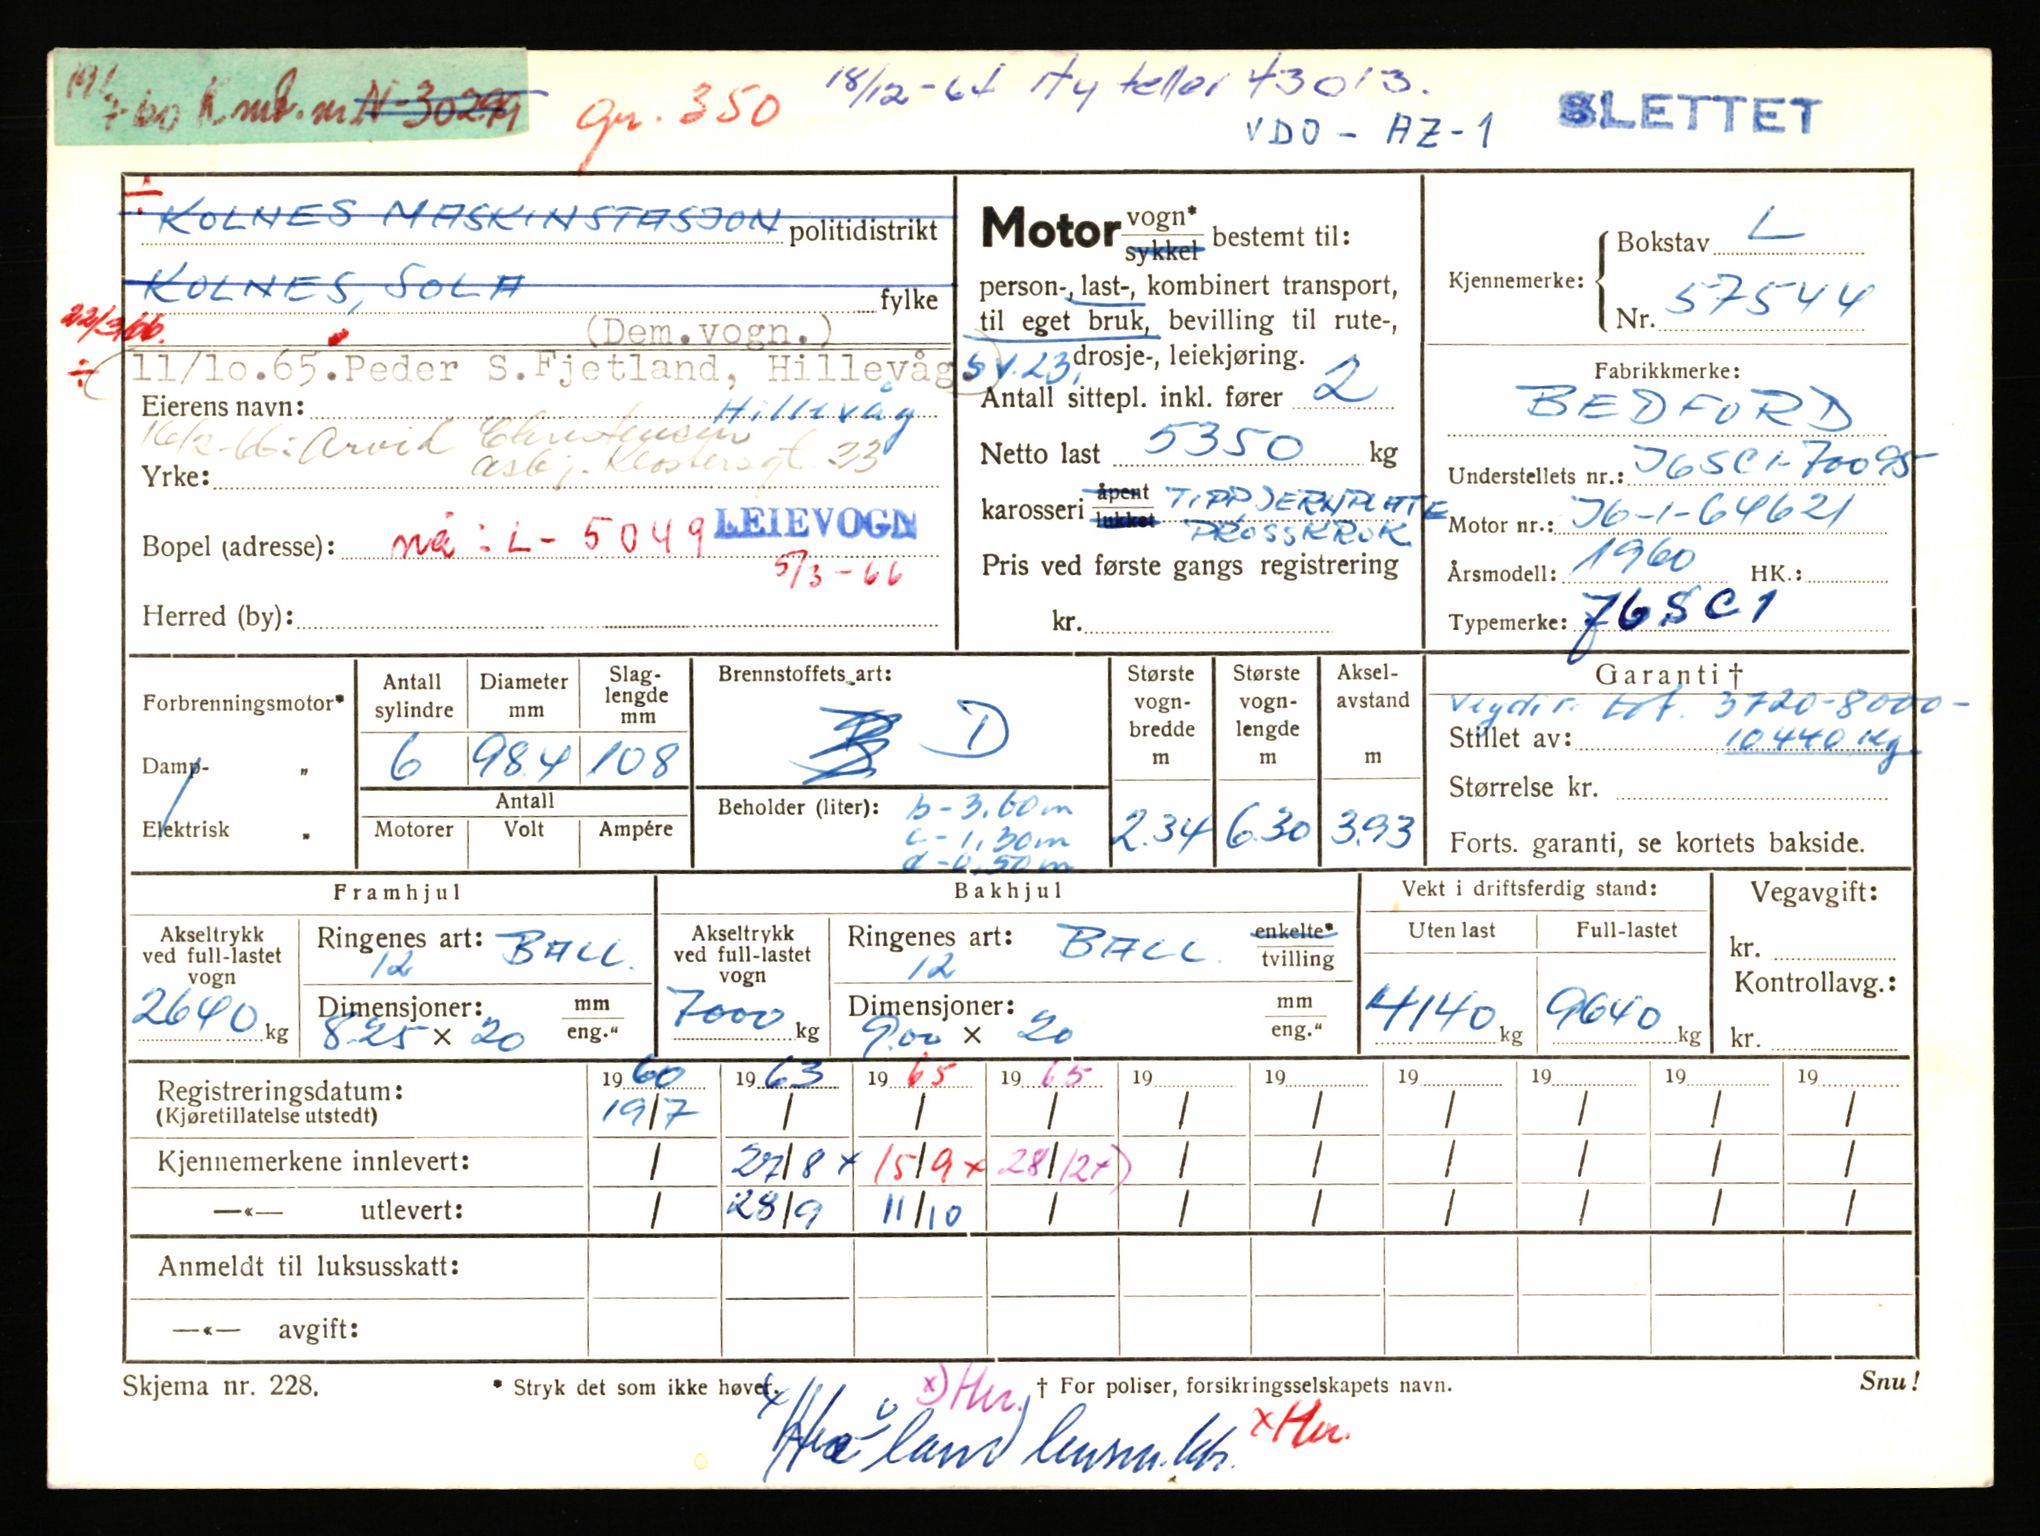 19/7-60 K.mb.m N-30299
gr. 350
18/12-64 Ny teller 43013.
VDO - AZ-1
SLETTET
KOLNES MASKINSTASJON politidistrikt
KOLNES, SOLA fylke
22/3/66.
(Dem.vogn.)
÷ (11/10.65.Peder S.Fjetland, Hillevåg SV.23,)
Eierens navn: Hillevåg
16/2-66: Arvid Christensen
Yrke: Asbj. Klostersgt. 33
Bopel (adresse): nå: L- 5049 LEIEVOGN
5/3-66
Herred (by):
Motor vogn* sykkel bestemt til:
person-, last-, kombinert transport,
til eget bruk, bevilling til rute-,
drosje-, leiekjøring.
Antall sittepl. inkl. fører 2
Netto last 5350 kg
karosseri åpent lukket TIPP, JERNPLATTE
DROSSKROK
Pris ved første gangs registrering
kr.
Kjennemerke: Bokstav L
Nr. 57544
Fabrikkmerke:
BEDFORD
Understellets nr.: J6SC1-70095
Motor nr.: J6-1-64621
Årsmodell: 1960 HK.:
Typemerke: J6SC1
Forbrenningsmotor*
Damp- „
Elektrisk „
Antall sylindre 6
Diameter mm 98.4
Slag-lengde mm 108
Antall
Motorer Volt Ampére
Brennstoffets art: D
Beholder (liter): b- 3.60 m
c- 1,30 m
d- 0,50 m
Største vogn-bredde m 2.34
Største vogn-lengde m 6.30
Aksel-avstand m 3.93
Garanti †
Vegdir. tot. 3720-8000-
Stillet av: 10440 kg
Størrelse kr.
Forts. garanti, se kortets bakside.
Framhjul
Akseltrykk ved full-lastet vogn 2640 kg
Ringenes art: BALL.
12
Dimensjoner: mm eng.“
8.25 × 20
Bakhjul
Akseltrykk ved full-lastet vogn 7000 kg
Ringenes art: BALL. enkelte* tvilling
12
Dimensjoner: mm eng.“
9.00 × 20
Vekt i driftsferdig stand:
Uten last Full-lastet
4140 kg 9640 kg
Vegavgift:
kr.
Kontrollavg.:
kr.
Registreringsdatum: 1960 1963 1965 1965 19 19 19 19 19 19
(Kjøretillatelse utstedt) 19/7 / / / / / / / / /
Kjennemerkene innlevert: / 27/8 x 15/9 x 28/12 x) / / / / / /
—«— utlevert: / 28/9 11/10 / / / / / / /
Anmeldt til luksusskatt:
—«— avgift:
Skjema nr. 228.
* Stryk det som ikke høver.
x) Hu.
† For poliser, forsikringsselskapets navn.
Snu!
x Håland lensm.ktr.
x Hu.